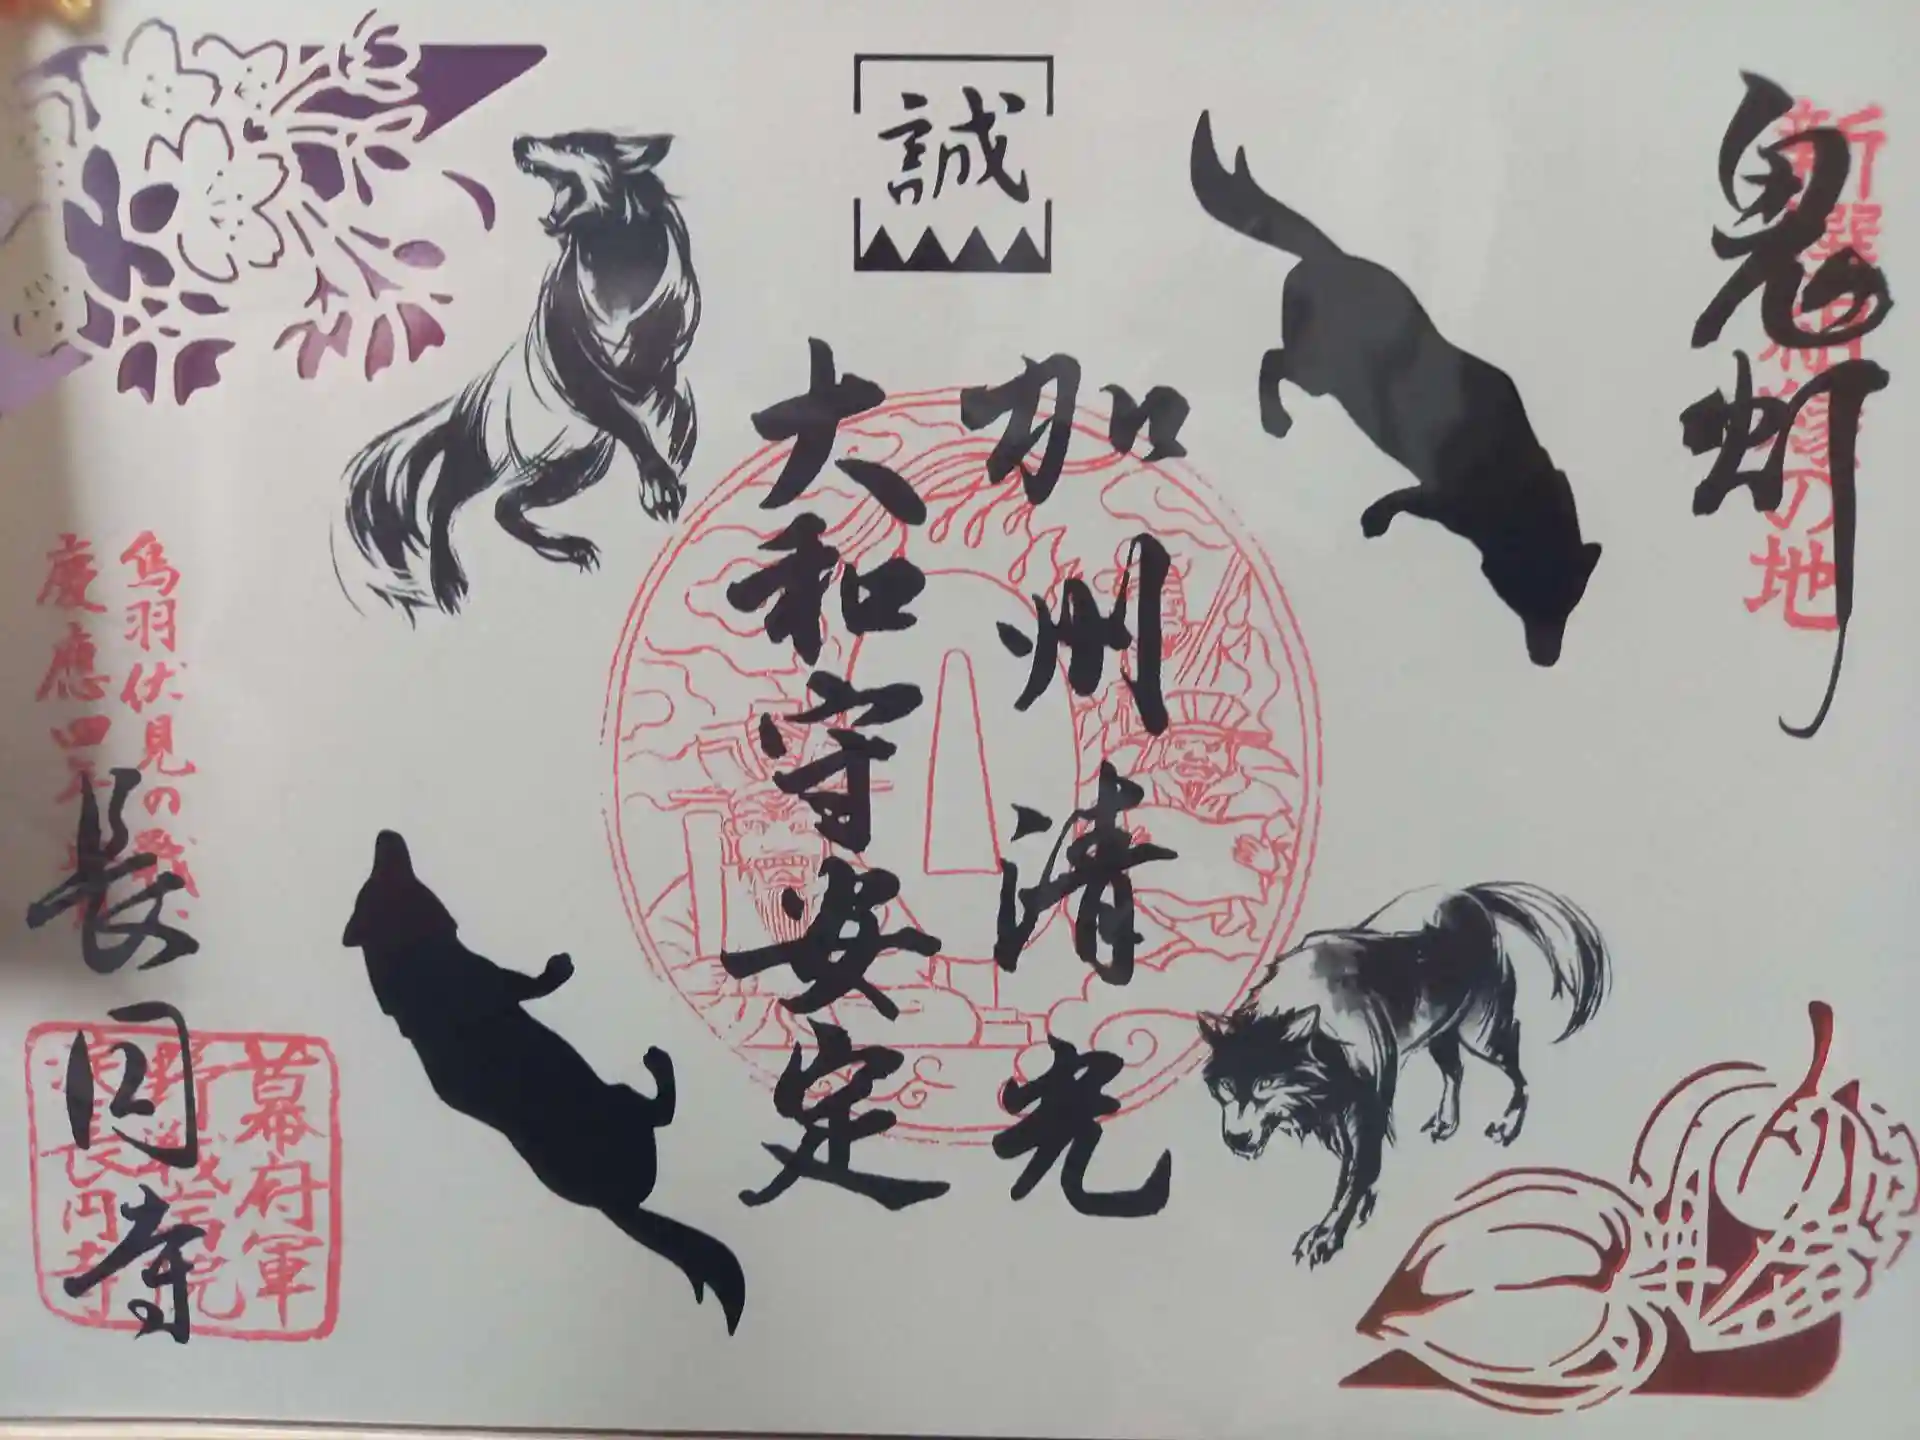 鬼灯
新選組
の地
誠
加州清光
大和守安定
鳥羽伏見の戦
慶應四年
長円寺
幕府軍
野戦病院
長円寺